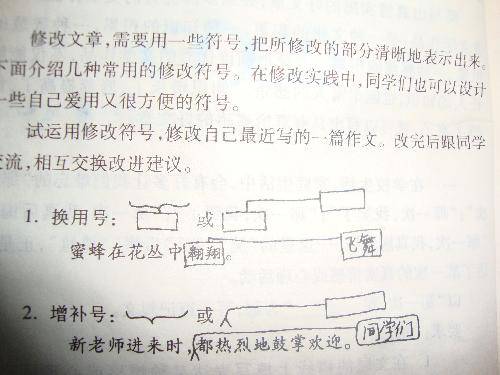 修改文章,需要用一些符号,把所修改的部分清晰地表示出来。
下面介绍几种常用的修改符号。在修改实践中,同学们也可以设计
一些自己爱用又很方便的符号。
试运用修改符号,修改自己最近写的一篇作文。改完后跟同学
交流,相互交换改进建议。
1. 换用号: 或
蜜蜂在花丛中翱翔。 飞舞
2. 增补号: 或
新老师进来时,都热烈地鼓掌欢迎。 同学们